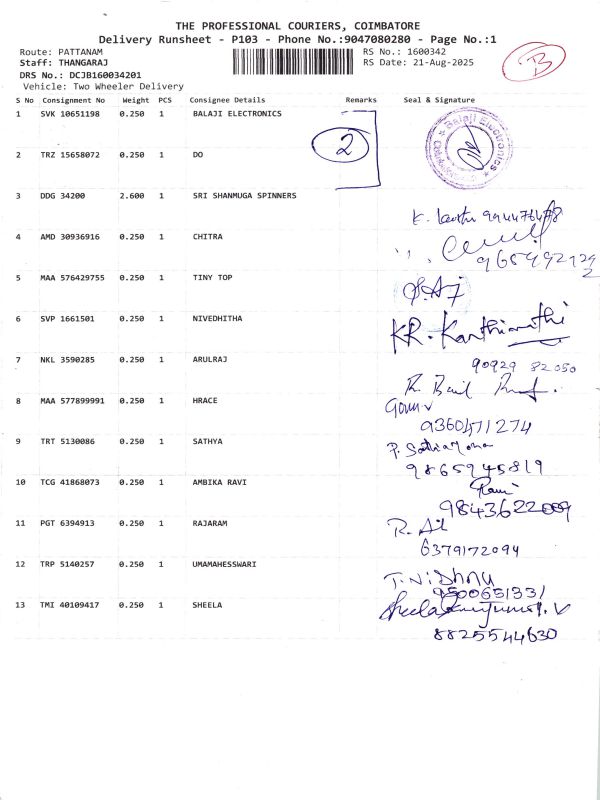 THE PROFESSIONAL COURIERS, COIMBATORE
Delivery Runsheet - P103 - Phone No.:9047080280 - Page No.:1
Route: PATTANAM RS No.: 1600342
Staff: THANGARAJ RS Date: 21-Aug-2025
DRS No.: DCJB160034201
Vehicle: Two Wheeler Delivery
B
S No Consignment No Weight PCS Consignee Details Remarks Seal & Signature
1 SVK 10651198 0.250 1 BALAJI ELECTRONICS
Balaji Electronics
2
2 TRZ 15658072 0.250 1 DO
3 DDG 34200 2.600 1 SRI SHANMUGA SPINNERS
4 AMD 30936916 0.250 1 CHITRA
5 MAA 576429755 0.250 1 TINY TOP
6 SVP 1661501 0.250 1 NIVEDHITHA
KR.
7 NKL 3590285 0.250 1 ARULRAJ
90929 82050
8 MAA 577899991 0.250 1 HRACE
9360471274
9 TRT 5130086 0.250 1 SATHYA
9865945819
10 TCG 41868073 0.250 1 AMBIKA RAVI
9843622009
11 PGT 6394913 0.250 1 RAJARAM
6379172094
12 TRP 5140257 0.250 1 UMAMAHESSWARI
9500651331
13 TMI 40109417 0.250 1 SHEELA
8825544630